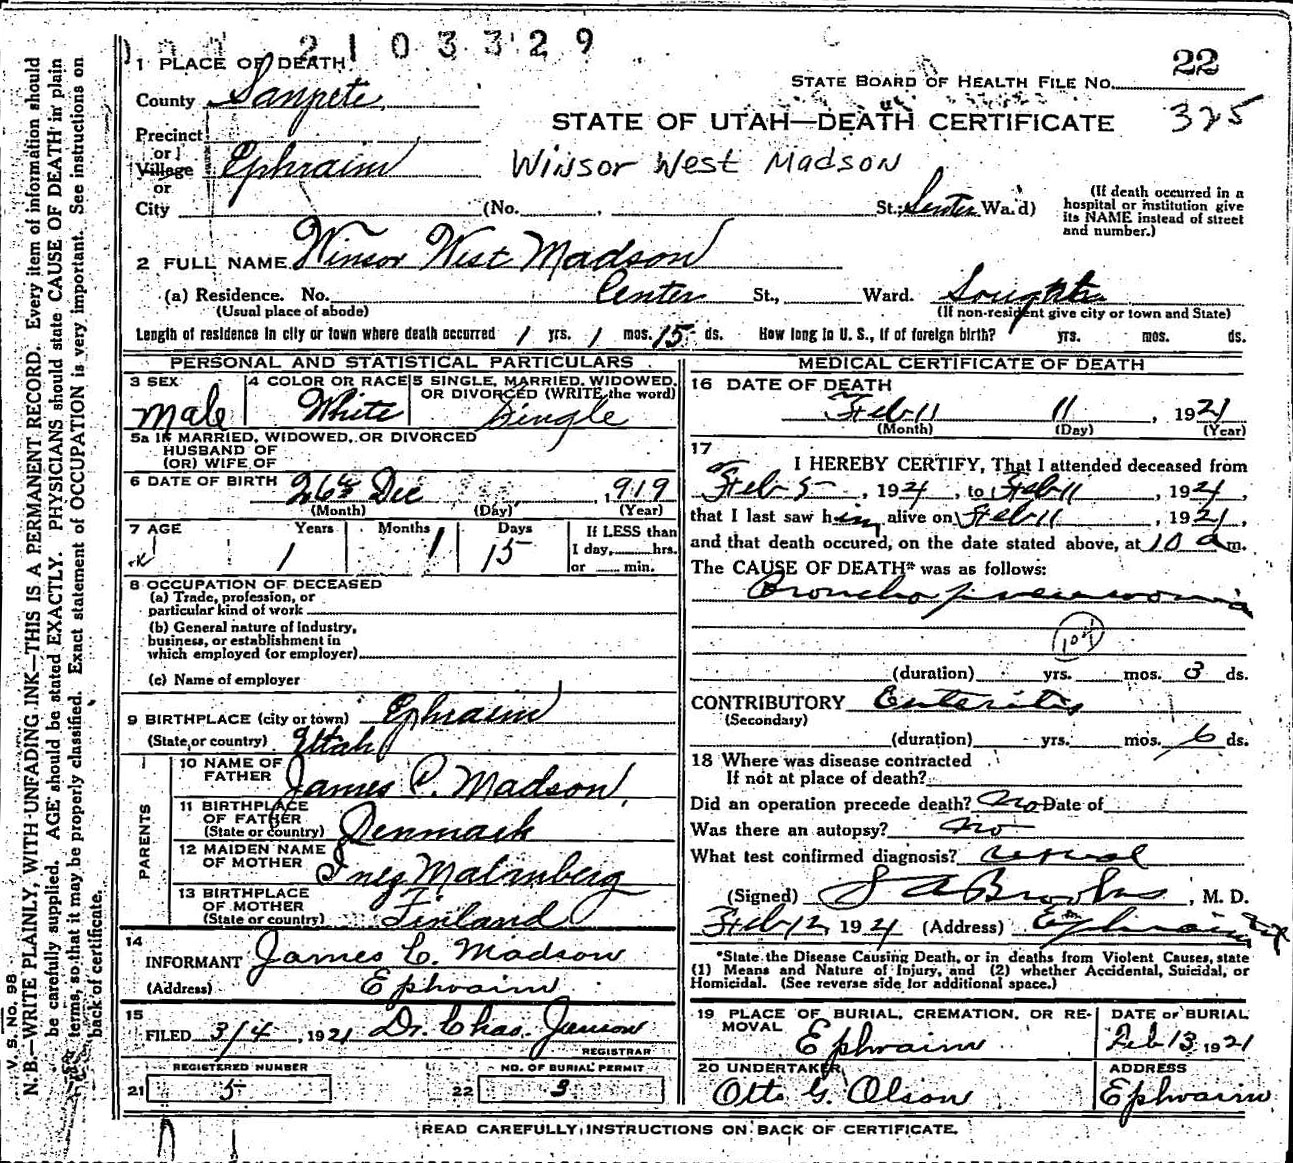 2103329
1 PLACE OF DEATH
22
STATE BOARD OF HEALTH FILE No.
County Sanpete
325
STATE OF UTAH—DEATH CERTIFICATE
Precinct
or
Village Ephraim
Winsor West Madson
or
City (No. , St.; Senter Wa.d)
(If death occurred in a
hospital or institution give
its NAME instead of street
and number.)
2 FULL NAME Winsor West Madson
(a) Residence. No. Center St., Ward.
(Usual place of abode) (If non-resident give city or town and State)
Length of residence in city or town where death occurred 1 yrs. 1 mos. 15 ds. How long in U. S., if of foreign birth? yrs. mos. ds.
PERSONAL AND STATISTICAL PARTICULARS
3 SEX 4 COLOR OR RACE 5 SINGLE, MARRIED, WIDOWED,
OR DIVORCED (WRITE the word)
Male White Single
5a IF MARRIED, WIDOWED, OR DIVORCED
HUSBAND OF
(OR) WIFE OF
6 DATE OF BIRTH 26 Dec , 1919
(Month) (Day) (Year)
7 AGE Years Months Days If LESS than
1 1 15 1 day, hrs.
or min.
8 OCCUPATION OF DECEASED
(a) Trade, profession, or
particular kind of work
(b) General nature of industry,
business, or establishment in
which employed (or employer)
(c) Name of employer
9 BIRTHPLACE (city or town) Ephraim
(State or country) Utah
PARENTS
10 NAME OF
FATHER James P. Madson
11 BIRTHPLACE
OF FATHER
(State or country) Denmark
12 MAIDEN NAME
OF MOTHER Inez Malmberg
13 BIRTHPLACE
OF MOTHER
(State or country) Finland
14
INFORMANT James C. Madson
(Address) Ephraim
15
FILED 3/4, 1921 Dr. Chas. Jenson
REGISTRAR
REGISTERED NUMBER NO. OF BURIAL PERMIT
21 5 22 3
MEDICAL CERTIFICATE OF DEATH
16 DATE OF DEATH
Feb 11 11 , 1921
(Month) (Day) (Year)
17
I HEREBY CERTIFY, That I attended deceased from
Feb 5 , 1921, to Feb 11 , 1921,
that I last saw him alive on Feb 11 , 1921,
and that death occured, on the date stated above, at 10 a m.
The CAUSE OF DEATH* was as follows:
Broncho pneumonia
104
(duration) yrs. mos. 3 ds.
CONTRIBUTORY Enteritis
(Secondary)
(duration) yrs. mos. 6 ds.
18 Where was disease contracted
If not at place of death?
Did an operation precede death? No Date of
Was there an autopsy? No
What test confirmed diagnosis?
(Signed) , M. D.
Feb 12 1921 (Address) Ephraim
*State the Disease Causing Death, or in deaths from Violent Causes, state
(1) Means and Nature of Injury, and (2) whether Accidental, Suicidal, or
Homicidal. (See reverse side for additional space.)
19 PLACE OF BURIAL, CREMATION, OR RE- DATE OF BURIAL
MOVAL Ephraim Feb 13 1921
20 UNDERTAKER ADDRESS
Otto G. Olson Ephraim
READ CAREFULLY INSTRUCTIONS ON BACK OF CERTIFICATE.
V. S. No. 98
N. B.—WRITE PLAINLY, WITH UNFADING INK—THIS IS A PERMANENT RECORD. Every item of information should
be carefully supplied. AGE should be stated EXACTLY. PHYSICIANS should state CAUSE OF DEATH in plain
terms, so that it may be properly classified. Exact statement of OCCUPATION is very important. See instructions on
back of certificate.